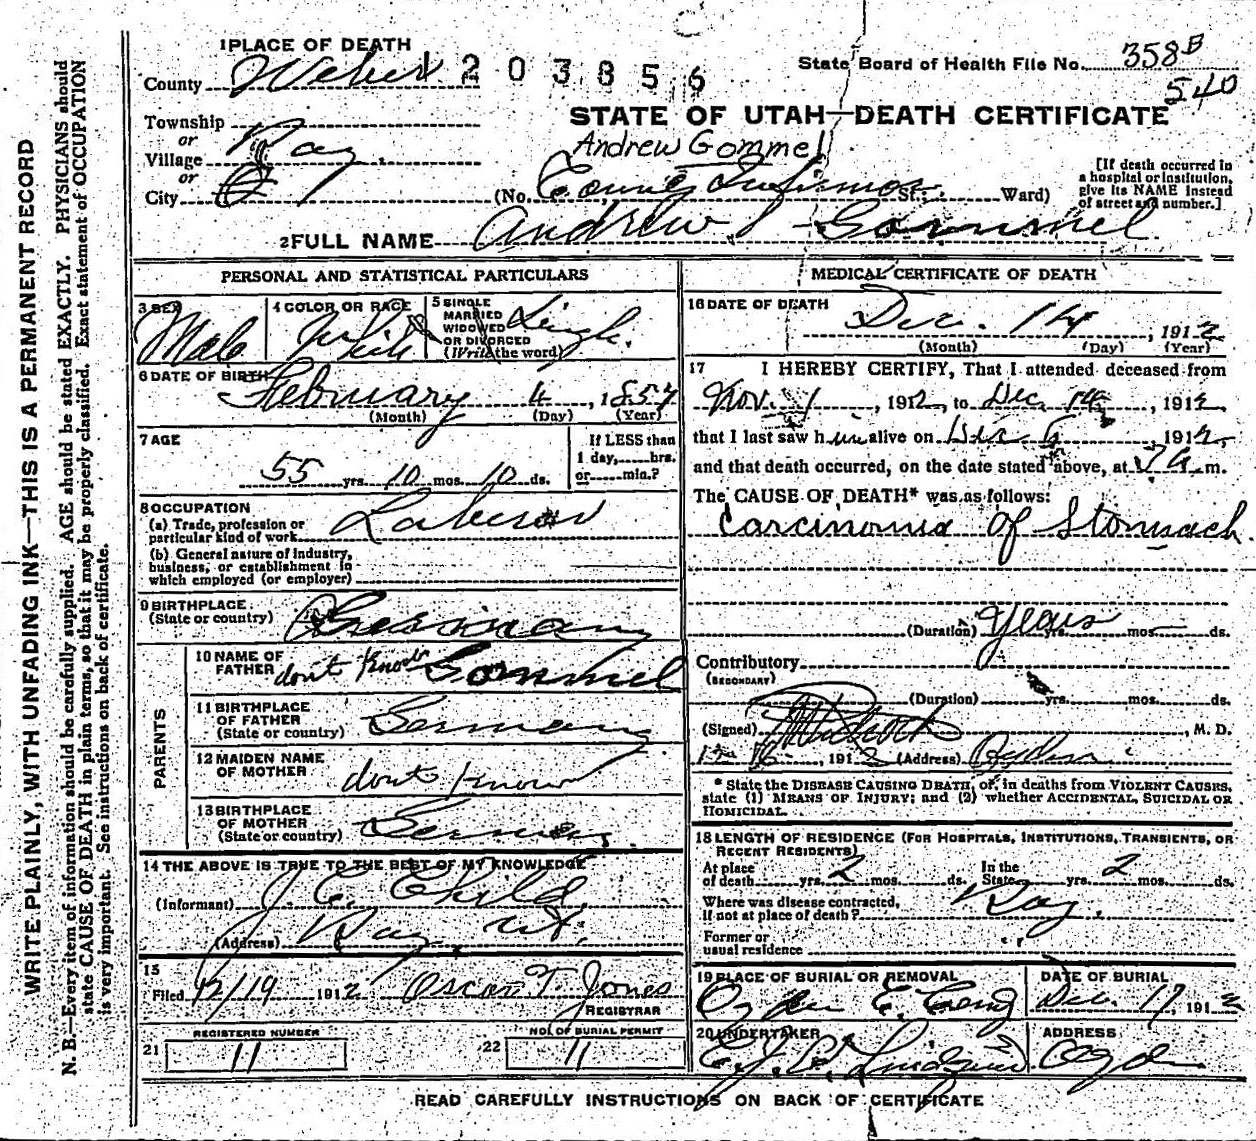 WRITE PLAINLY, WITH UNFADING INK—THIS IS A PERMANENT RECORD
N. B.—Every item of information should be carefully supplied. AGE should be stated EXACTLY. PHYSICIANS should
state CAUSE OF DEATH in plain terms, so that it may be properly classified. Exact statement of OCCUPATION
is very important. See instructions on back of certificate.
1 PLACE OF DEATH
County Weber
1203856
State Board of Health File No. 358B
540
STATE OF UTAH—DEATH CERTIFICATE
Township
or
Village Roy
or
City
Andrew Gommel
(No. County Infirmary St.; Ward)
[If death occurred in
a hospital or institution,
give its NAME instead
of street and number.]
2 FULL NAME Andrew Gommel
PERSONAL AND STATISTICAL PARTICULARS
3 SEX Male
4 COLOR OR RACE White
5 SINGLE
MARRIED
WIDOWED
OR DIVORCED
(Write the word) Single.
6 DATE OF BIRTH February 4, 1857
(Month) (Day) (Year)
7 AGE
55 yrs. 10 mos. 10 ds.
If LESS than
1 day, hrs.
or min.?
8 OCCUPATION
(a) Trade, profession or
particular kind of work Laborer
(b) General nature of industry,
business, or establishment in
which employed (or employer)
9 BIRTHPLACE
(State or country) Germany
PARENTS
10 NAME OF
FATHER don't Know Gommel
11 BIRTHPLACE
OF FATHER
(State or country) Germany
12 MAIDEN NAME
OF MOTHER dont Know
13 BIRTHPLACE
OF MOTHER
(State or country) Germany
14 THE ABOVE IS TRUE TO THE BEST OF MY KNOWLEDGE
(Informant) J. E. Child
(Address) Roy, Ut.
15
Filed 12/19 1912 Oscar T. Jones
REGISTRAR
REGISTERED NUMBER
21 11
NO. OF BURIAL PERMIT
22 11
MEDICAL CERTIFICATE OF DEATH
16 DATE OF DEATH
Dec. 14, 1912
(Month) (Day) (Year)
17 I HEREBY CERTIFY, That I attended deceased from
Nov. 1, 1912, to Dec. 14, 1912,
that I last saw him alive on Dec 6, 1912
and that death occurred, on the date stated above, at 7 a m.
The CAUSE OF DEATH* was as follows:
Carcinoma of Stomach.
(Duration) Years yrs. mos. ds.
Contributory
(SECONDARY)
(Duration) yrs. mos. ds.
(Signed) , M. D.
12-16, 1912 (Address) Ogden
* State the DISEASE CAUSING DEATH, or, in deaths from VIOLENT CAUSES,
state (1) MEANS OF INJURY; and (2) whether ACCIDENTAL, SUICIDAL OR
HOMICIDAL.
18 LENGTH OF RESIDENCE (FOR HOSPITALS, INSTITUTIONS, TRANSIENTS, OR
RECENT RESIDENTS)
At place
of death yrs. 2 mos. ds. In the
State yrs. 2 mos. ds.
Where was disease contracted,
if not at place of death? Roy.
Former or
usual residence
19 PLACE OF BURIAL OR REMOVAL
Ogden Cemy
DATE OF BURIAL
Dec. 17, 1912
20 UNDERTAKER
Lindquist
ADDRESS
Ogden
READ CAREFULLY INSTRUCTIONS ON BACK OF CERTIFICATE